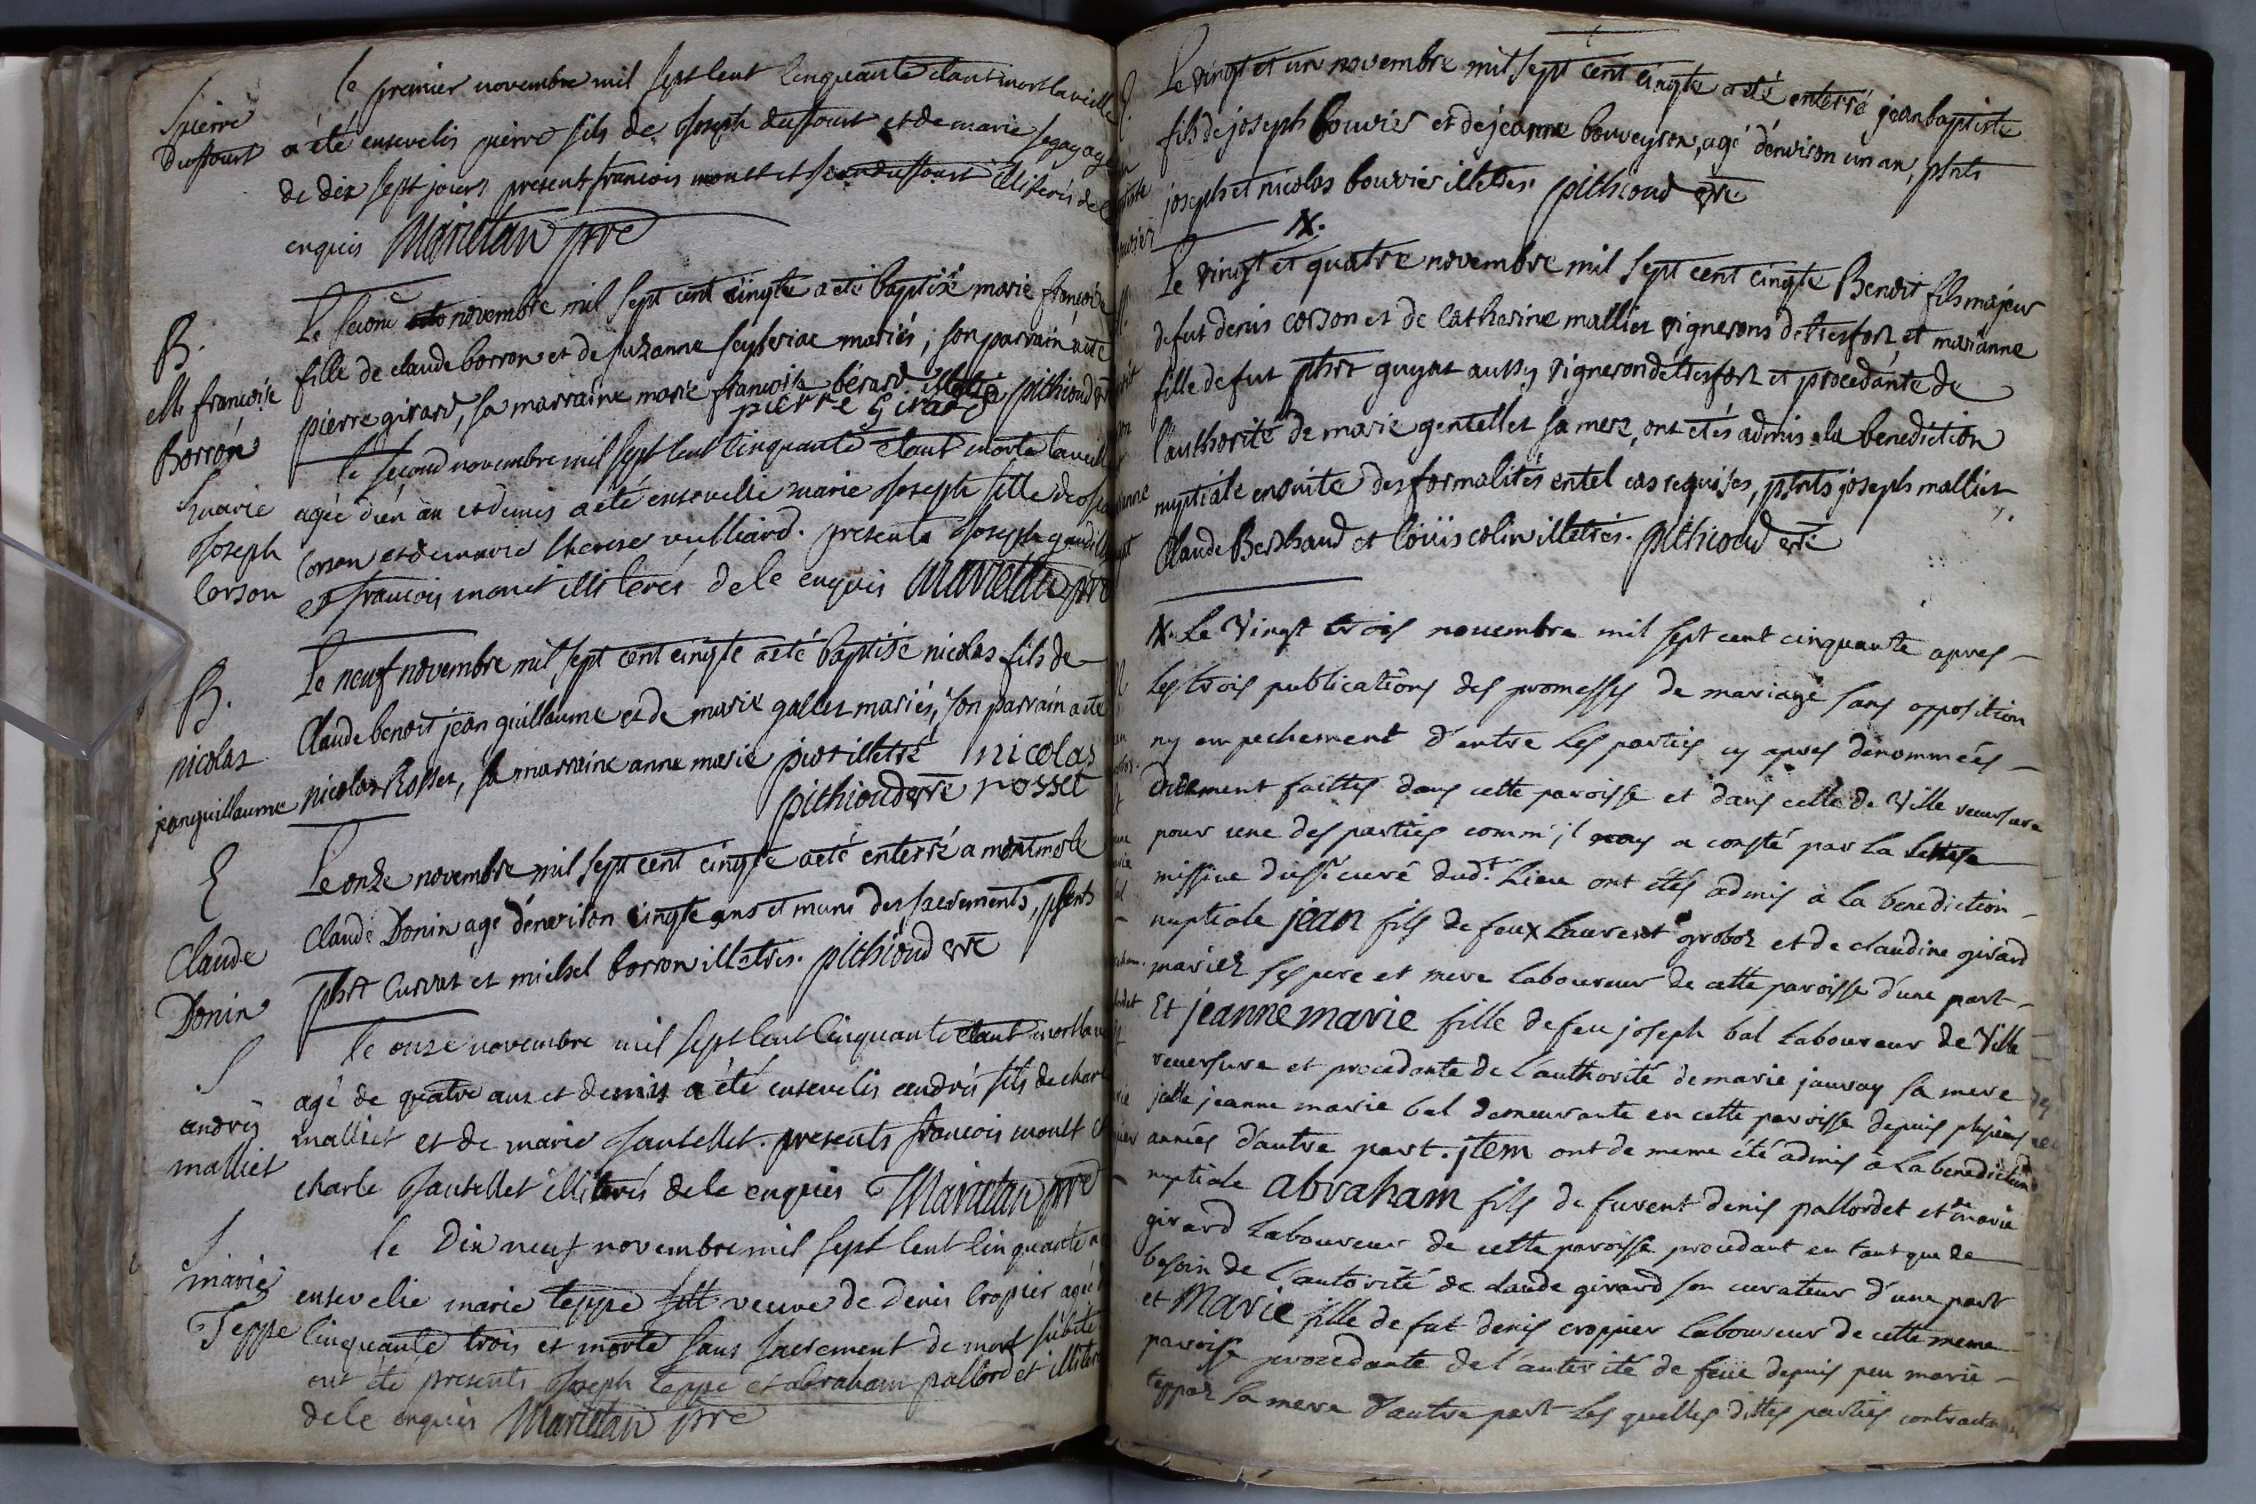 S pierre
dufourt
le premier novembre mil sept cent cinquante etant mort la vielle
a été ensevelis pierre fils de Joseph dufourt et de marie
de dix sept jours present francois monet et dufourt illiterés de
enquis Marietan pre
B.
françoise
Borron
Le second novembre mil sept cent cinqte a eté baptisé marie françoise
fille de claude borron et de suzanne mariés; son parrain a eté
pierre girard, sa marraine marie françoise bérard pithioud
pierre Girard
S marie
Joseph
Corson
le second novembre mil sept cent cinquante etant morte la veille
agée d'un an et demis a été ensevelie marie Joseph fille de
Corson et de marie therese vulliard. presents Joseph
et francois monet illiterés de le enquis Marietan pre
B.
nicolas
jeanguillaume
Le neuf novembre mil sept cent cinqte a eté baptisé nicolas fils de
Claude benoit jean guillaume et de marie gallet mariés, son parrain a eté
nicolas Rosset, sa marraine anne marie illetré nicolas
pithioud rosset
E
Claude
Donin
Le onze novembre mil sept cent cinqte a eté enterré a montmerle
Claude Donin agé d'environ cinqte ans et muni des sacrements, pnts
phrt Curvat et michel borron illetrés. pithioud
S
andrÿ
malliet
le onze novembre mil sept cent cinquante etant mort la
agé de quatre ans et demis a été ensevelis andrés fils de charle
malliet et de marie Jantellet. presents francois monet et
charle Jantellet illiterés de le enquis Marietan pre
S
marie
Teppe
le Dix neuf novembre mil sept cent cinquante a
ensevelie marie teppe veuve de denis cropier agée
cinquante trois et morte sans sacrement de mort subite
ont été presents Joseph teppe et abraham pallordet
de le enquis Marietan pre
Le vingt et un novembre mil sept cent cinqte a eté enterré jean baptiste
fils de joseph bouvier et de jeanne bouveyron, agé d'environ un an, pnts
joseph et nicolas bouvier illetrés. pithioud
X.
Le vingt et quatre novembre mil sept cent cinqte Benoit fils majeur
de fut denis corson et de Catherine malliet vignerons de tresfort et marianne
fille de fut phrt guyat aussy vigneron de tresfort et procedante de
l'authorité de marie gentellet sa mere, ont etés admis a la benediction
nuptiale ensuite des formalités en tel cas requises, pnts joseph malliet
Claude Berthaud et loüis colin illetrés. pithioud
X. Le Vingt trois nouembre mil sept cent cinquante apres
les trois publications des promesses de mariage sans opposition
ny empechement d'entre les parties cy apres denommées
duement faittes dans cette paroisse et dans celle de Ville reuersure
pour une des parties comm'il nous a consté par la lettre
missiue du sr curé dudt. Lieu ont étés admis à la benediction
nuptiale jean fils de feux Laurent groboz et de claudine girard
mariez ses pere et mere laboureur de cette paroisse d'une part
Et jeanne marie fille de feu joseph bal laboureur de Ville
reuersure et procedante de l'authorité de marie jauvay sa mere
jcelle jeanne marie bal demeurante en cette paroisse depuis plusieurs
années d'autre part. jtem ont de meme été admis à la benediction
nuptiale abraham fils de furent denis pallordet et de marie
girard laboureur de cette paroisse procedant en tant que de
besoin de l'autorité de claude girard son curateur d'une part
et Marie fille de fut denis croppier laboureur de cette meme
paroisse procedante de l'autorité de feüe depuis peu marie
teppaz sa mere d'autre part les quelles dittes parties